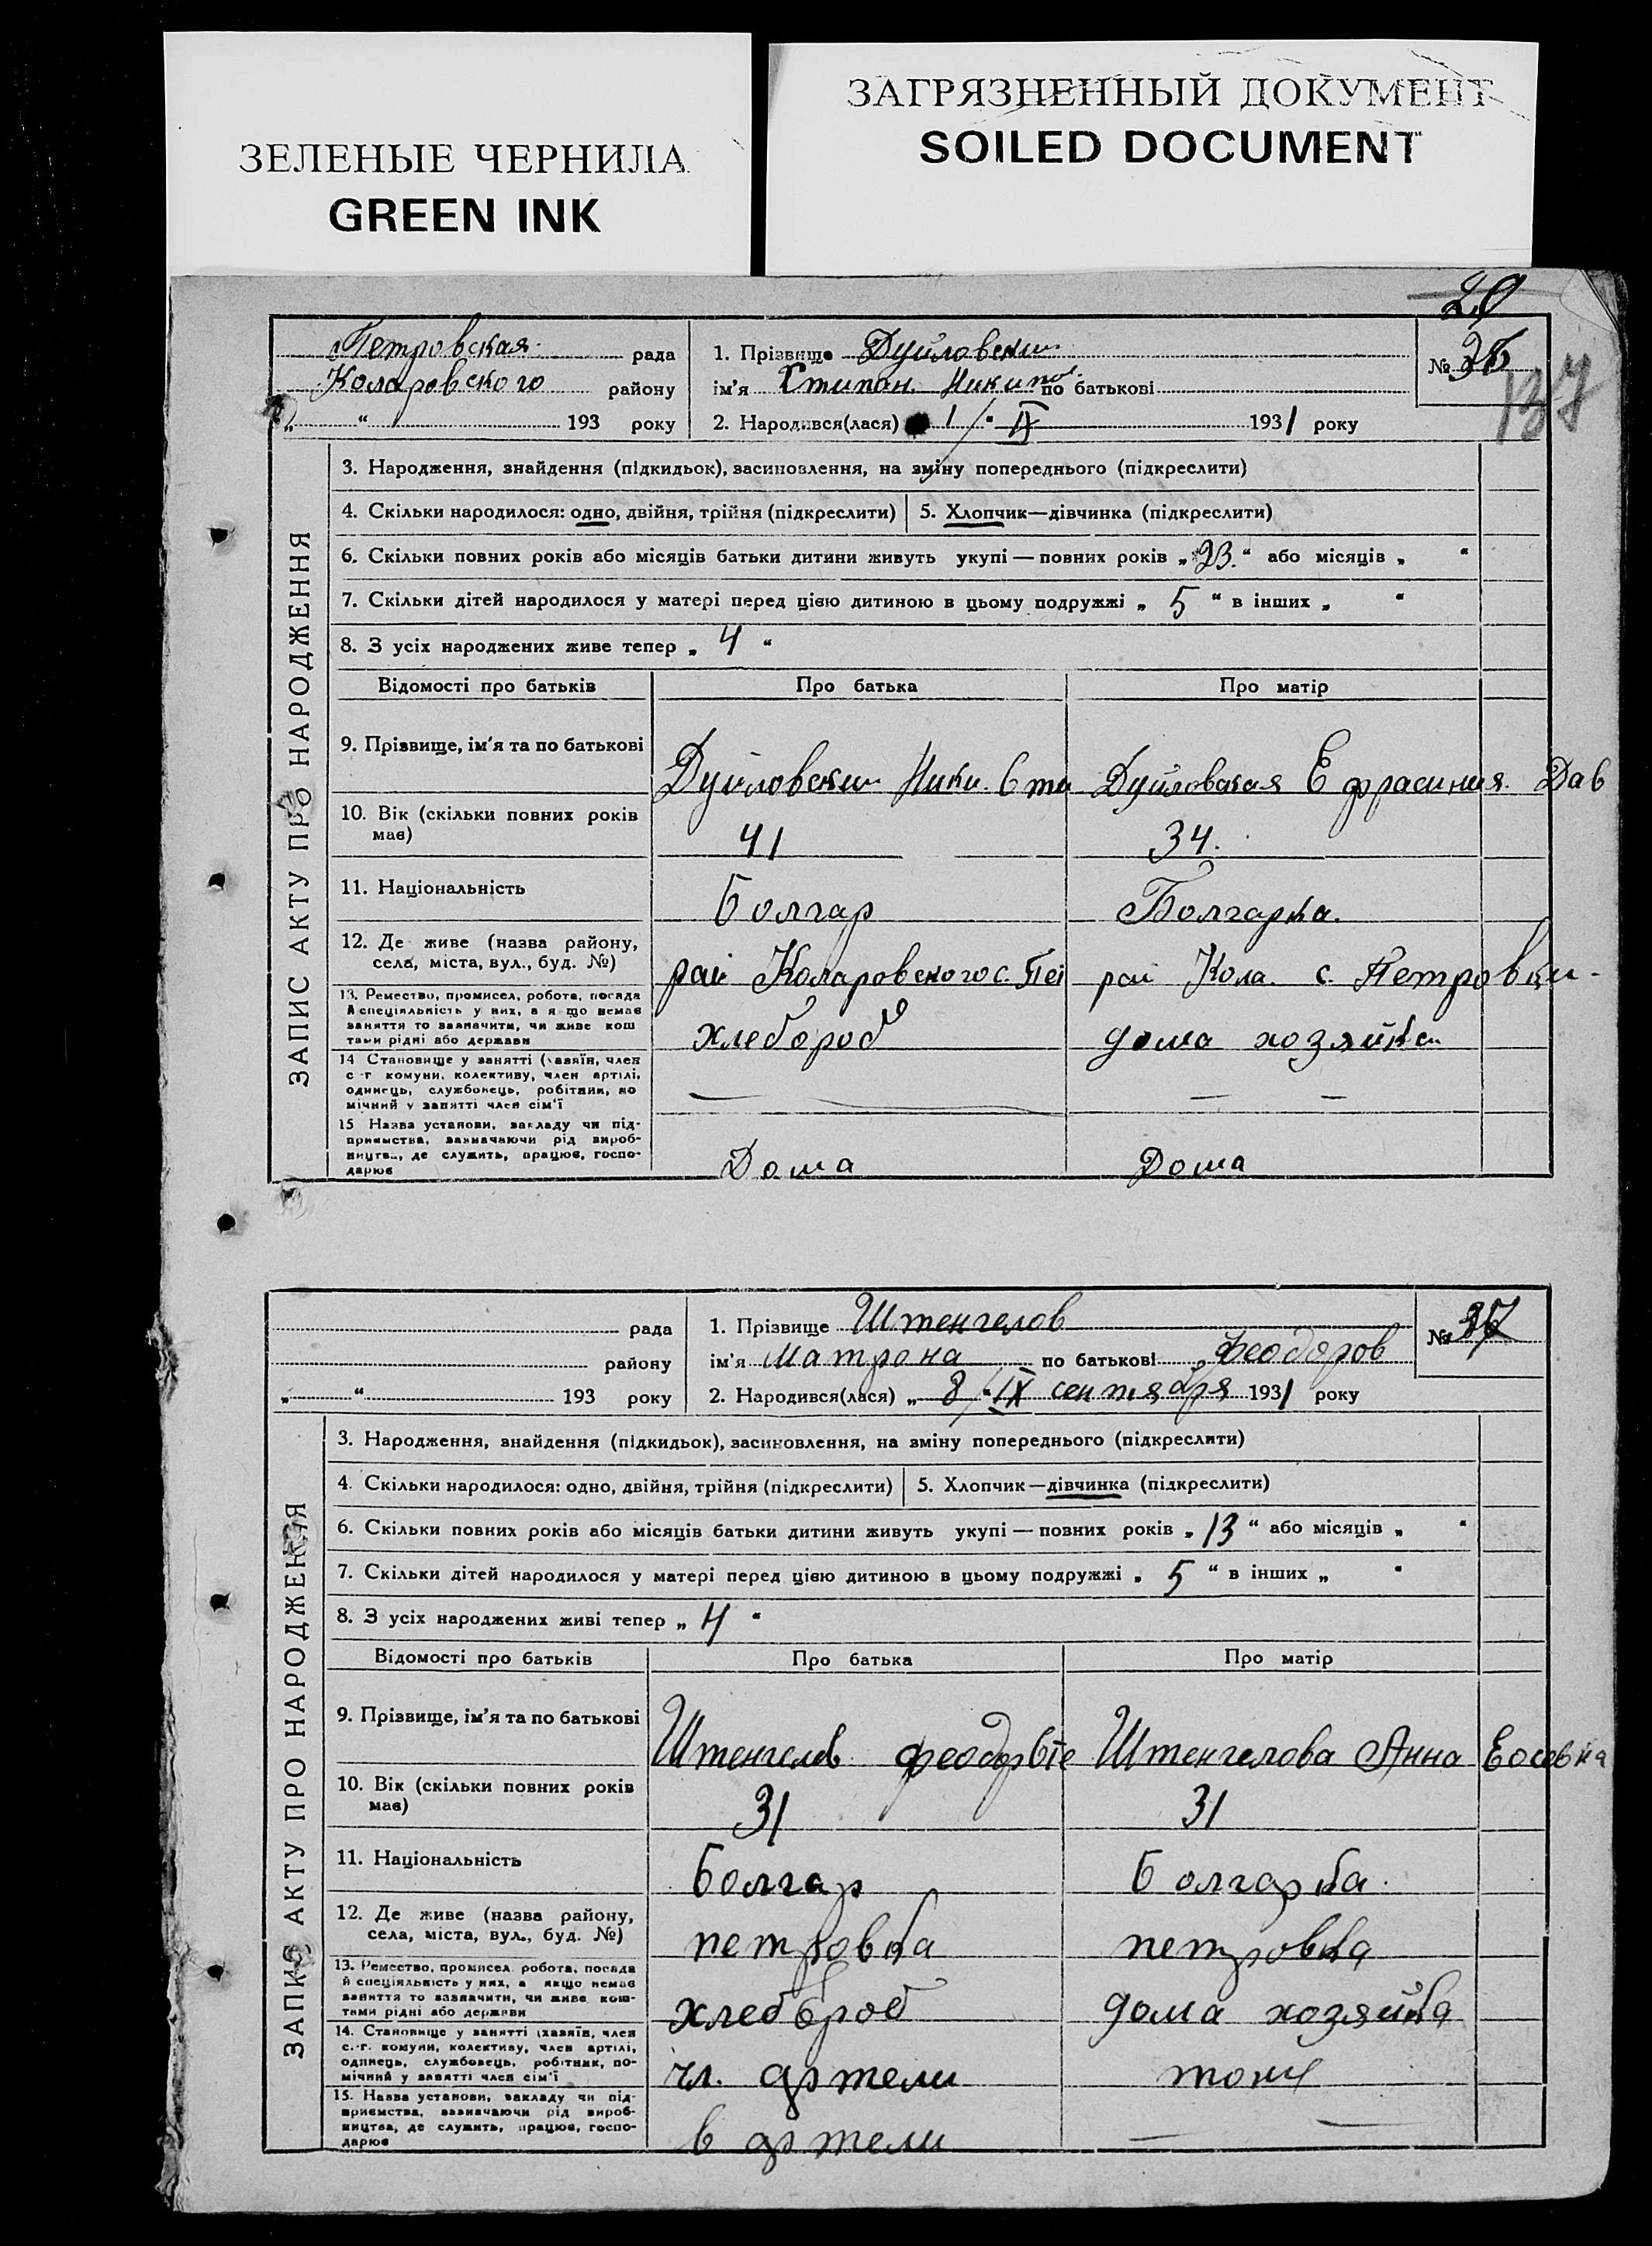 ЗЕЛЕНЫЕ ЧЕРНИЛА
GREEN INK
ЗАГРЯЗНЕННЫЙ ДОКУМЕНТ
SOILED DOCUMENT
137
ЗАПИС АКТУ ПРО НАРОДЖЕННЯ
Петровская рада
Коларовского району
„ “ 193 року
1. Прізвище Дуйловский
ім’я Стипан Никит по батькові
2. Народився(лася) 1/IX 1931 року
№ 36
3. Народження, знайдення (підкидьок), засиновлення, на зміну попереднього (підкреслити)
4. Скільки народилося: одно, двійня, трійня (підкреслити) 5. Хлопчик—дівчинка (підкреслити)
6. Скільки повних років або місяців батьки дитини живуть укупі — повних років „23“ або місяців „ “
7. Скільки дітей народилося у матері перед цією дитиною в цьому подружжі „ 5 “ в інших „ “
8. З усіх народжених живе тепер „ 4 “
Відомості про батьків Про батька Про матір
9. Прізвище, ім’я та по батькові Дуйловский Ники. Сте Дуйловская Ефрасиния Дав
10. Вік (скільки повних років має) 41 34.
11. Національність Болгар Болгарка.
12. Де живе (назва району,
села, міста, вул., буд. №) рай Коларовского с. Пет рай Кола. с. Петровки
13. Ремество, промисел, робота, посада
й спеціяльність у них, а якщо немає
заняття то зазначити, чи живе кош
тами рідні або держави хлебороб дома хозяйка
14 Становище у занятті (хазяїн, член
с -г комуни, колективу, член артілі,
одинець, службовець, робітник, по
мічний у занятті член сім’ї — — —
15 Назва установи, закладу чи під-
приємства, зазначаючи рід вироб-
ництва, де служить, працює, госпо-
дарює Дома Дома
ЗАПИС АКТУ ПРО НАРОДЖЕННЯ
рада
району
„ “ 193 року
1. Прізвище Штенгелов
ім’я Матрона по батькові Феодоров
2. Народився(лася) „ 8/IX сентября 1931 року
№ 37
3. Народження, знайдення (підкидьок), засиновлення, на зміну попереднього (підкреслити)
4. Скільки народилося: одно, двійня, трійня (підкреслити) 5. Хлопчик—дівчинка (підкреслити)
6. Скільки повних років або місяців батьки дитини живуть укупі — повних років „ 13 “ або місяців „ “
7. Скільки дітей народилося у матері перед цією дитиною в цьому подружжі „ 5 “ в інших „ “
8. З усіх народжених живі тепер „ 4 “
Відомості про батьків Про батька Про матір
9. Прізвище, ім’я та по батькові Штенгелов Феодор Штенгелова Анна
10. Вік (скільки повних років має) 31 31
11. Національність Болгар Болгарка.
12. Де живе (назва району,
села, міста, вул., буд. №) петровка петровка
13. Ремество, промисел, робота, посада
й спеціяльність у них, а якщо немає
заняття то зазначити, чи живе кош-
тами рідні або держави хлебороб дома хозяйка
14. Становище у занятті (хазяїн, член
с.-г. комуни, колективу, член артілі,
одинець, службовець, робітник, по-
мічний у занятті член сім’ї чл. артели
15. Назва установи, закладу чи під-
приємства, зазначаючи рід вироб-
ництва, де служить, працює, госпо-
дарює в артели — —